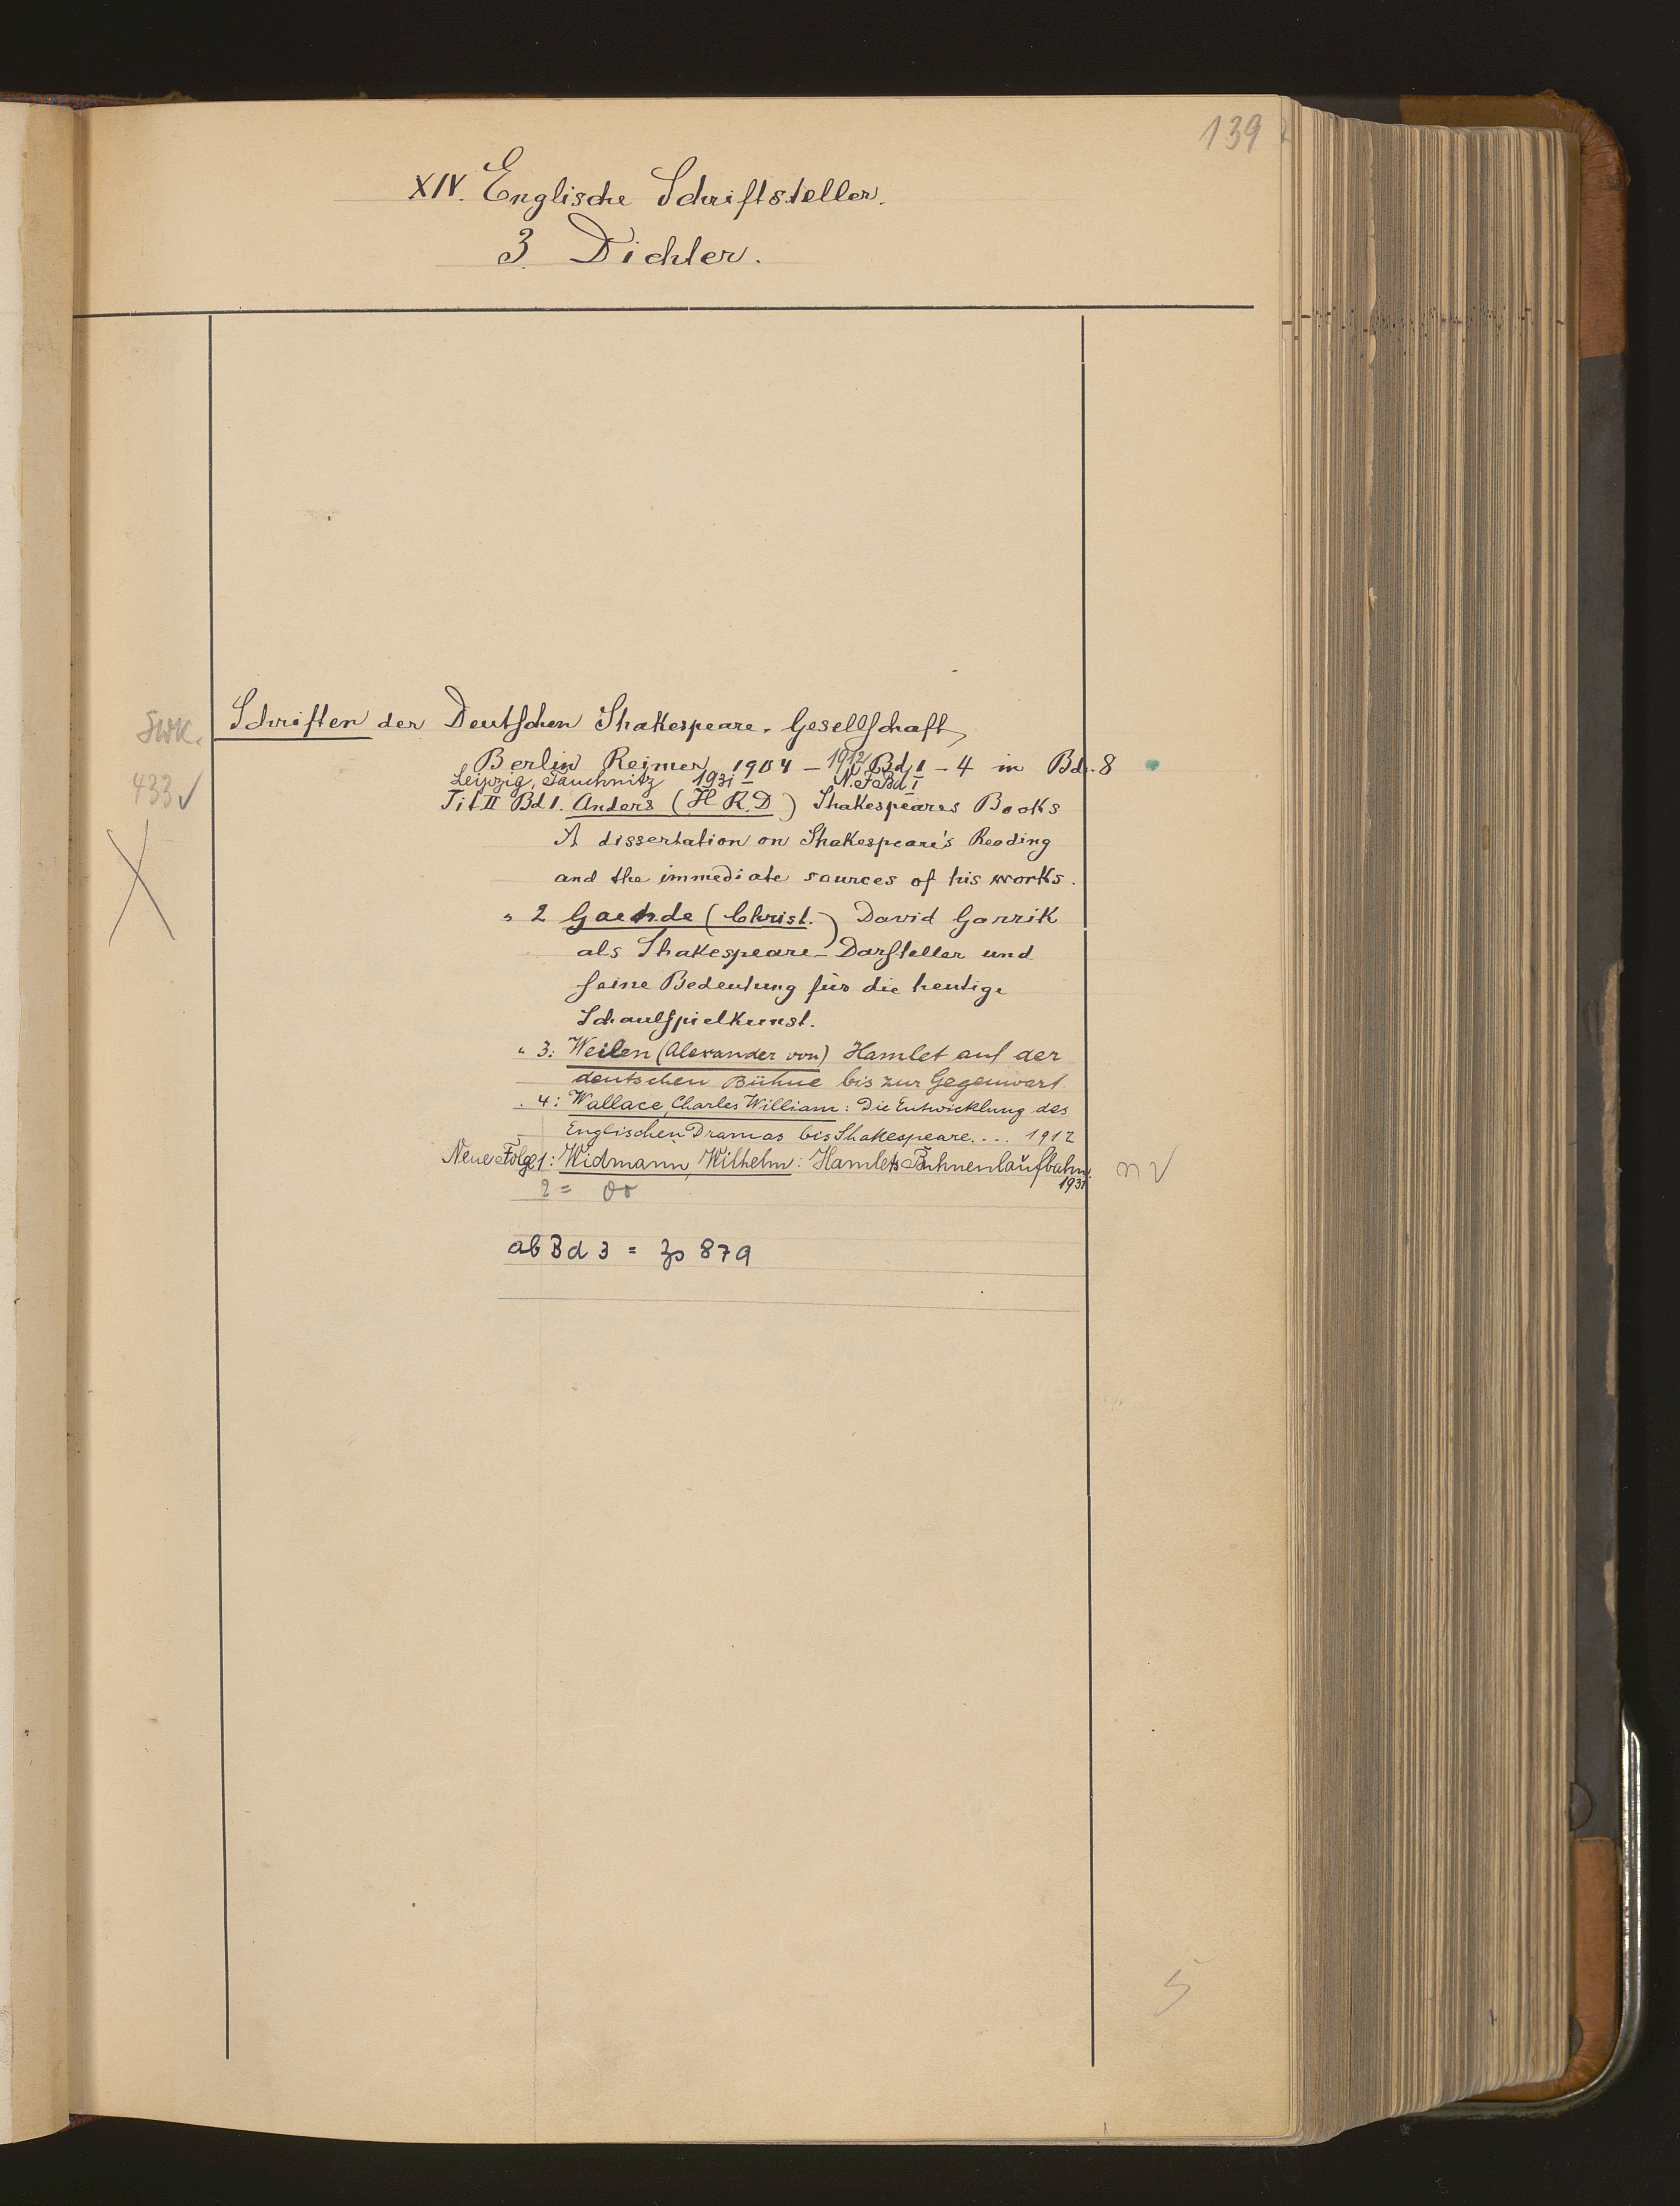 139
XIV. Englische Schriftsteller.
3. Dichter.
Schriften der Deutschen Shakespeare-Gesellschaft,
Berlin Reimer 1904 – 1912 Bd 1 – 4 in Bd. 8
Leipzig, Tauchnitz 1931 – N. F. Bd I
433 ✓
Tit II Bd 1. Anders (H R. D) Shakespeares Books
A dissertation on Shakespeare's Reading
and the immediate sources of his works.
" 2 Gaehde (Christ.) David Garrik
als Shakespeare-Darsteller und
seine Bedeutung für die heutige
Schauspielkunst.
" 3: Weilen (Alexander von) Hamlet auf der
deutschen Bühne bis zur Gegenwart
" 4: Wallace, Charles William: Die Entwicklung des
Englischen Dramas bis Shakespeare.... 1912
Neue Folge 1: Widmann, Wilhelm: Hamlets Bühnenlaufbahn.
1931
2 =
ab Bd 3 = Zs 879
5